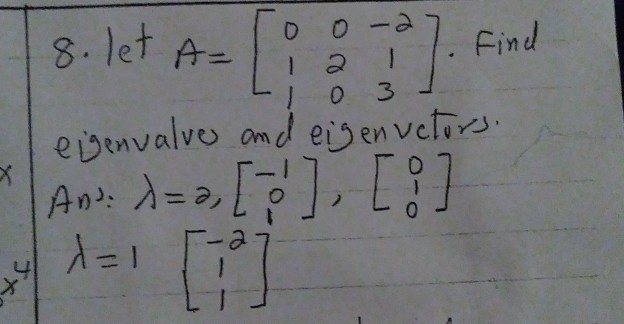 8. let A = [ 0 0 -2
1 2 1
1 0 3 ]. Find
eigenvalves and eigenvectors.
Ans: λ = 2, [ -1 0 1 ], [ 0 1 0 ]
λ = 1 [ -2 1 1 ]
x
x⁴